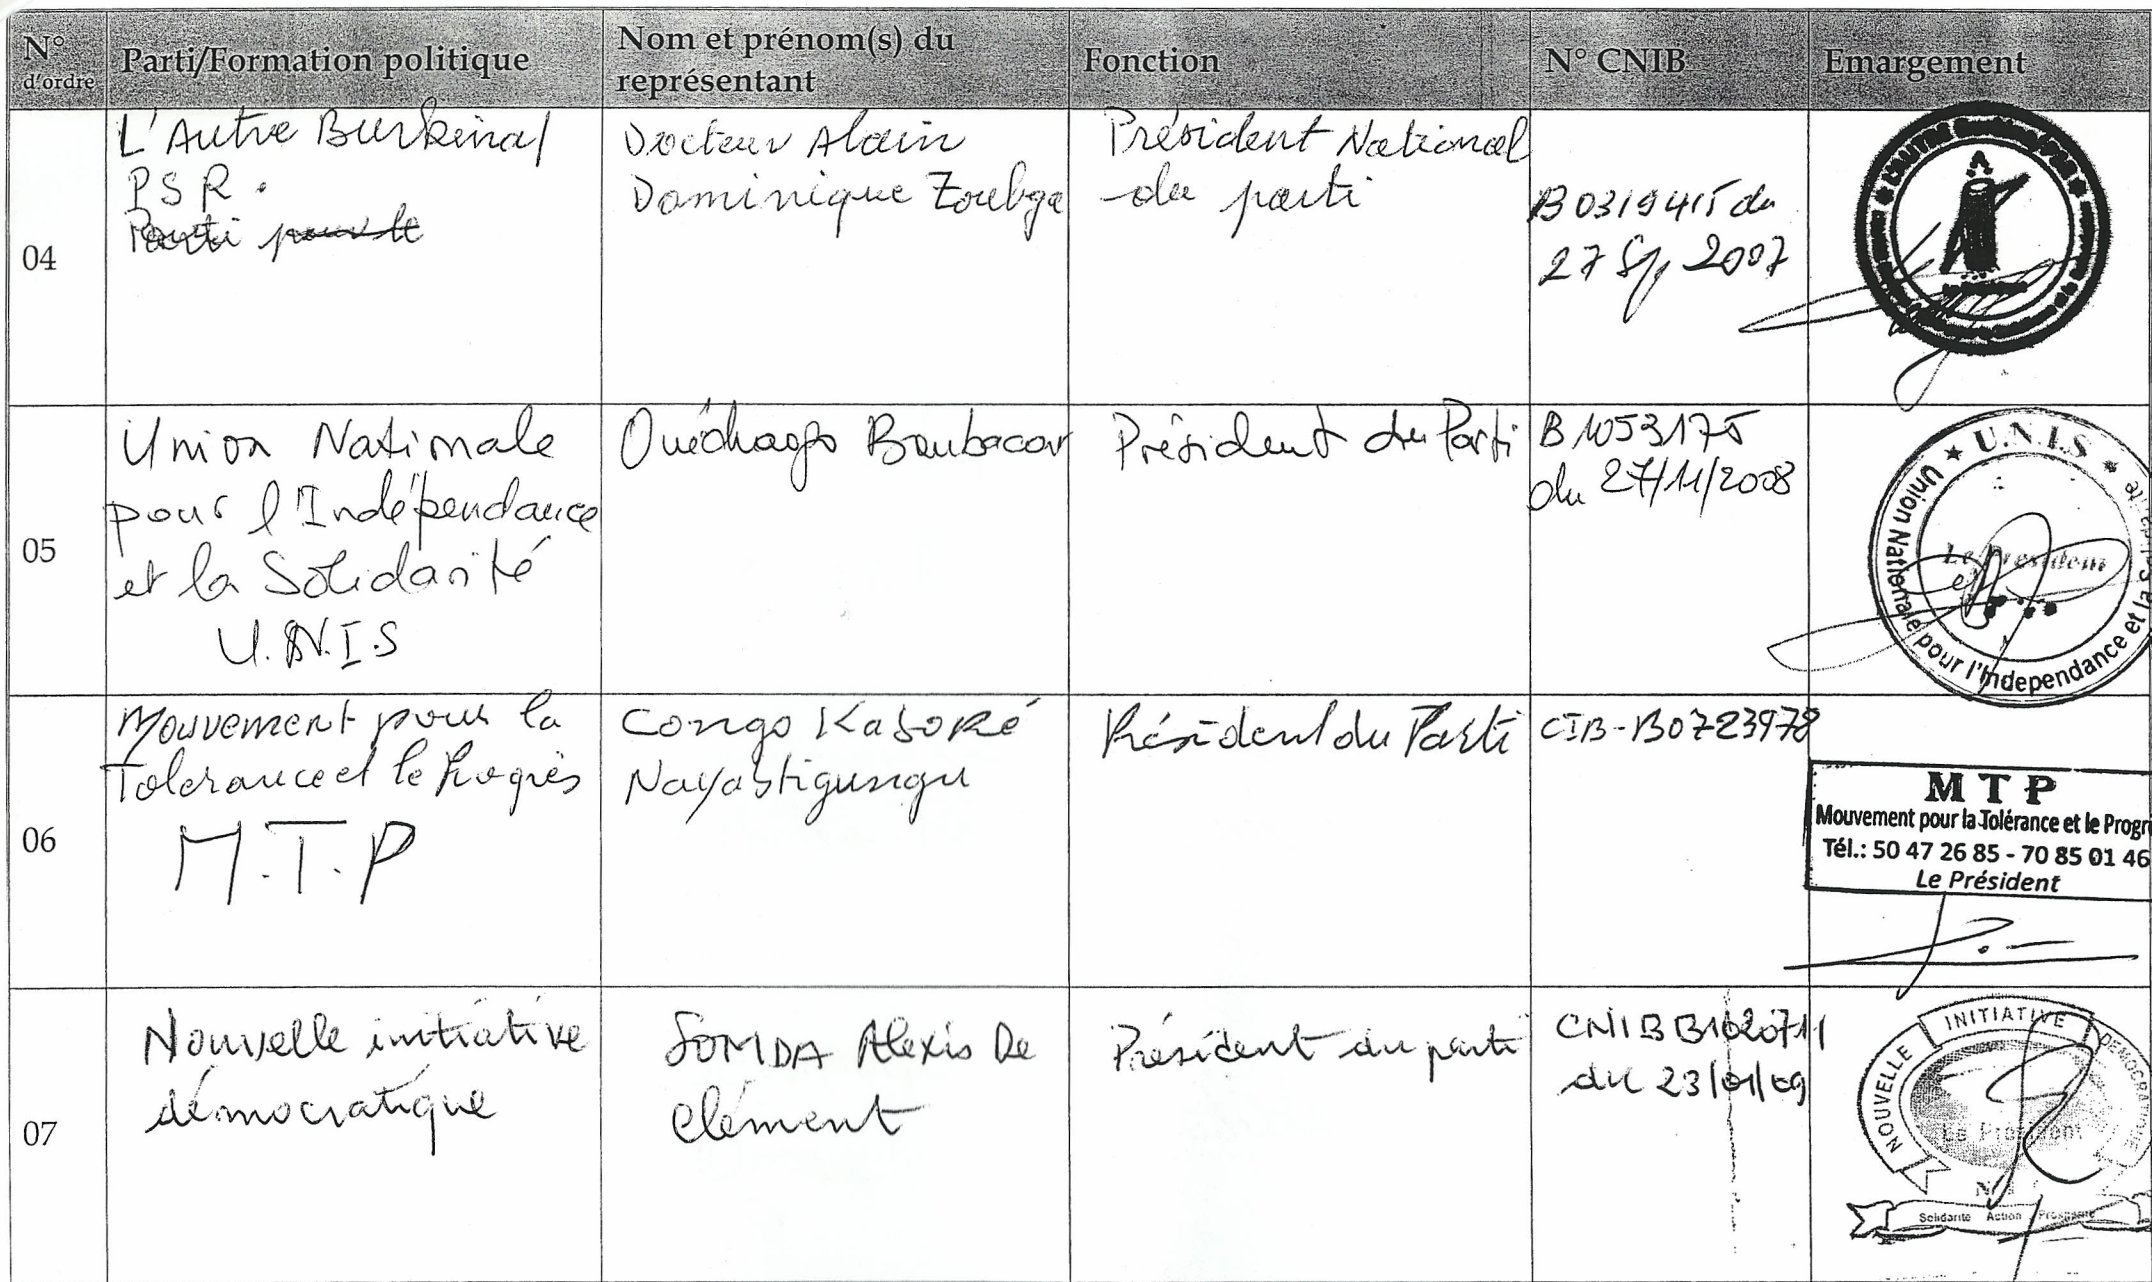 N° d'ordre
Parti/Formation politique
Nom et prénom(s) du
représentant
Fonction
N° CNIB
Emargement
04
L'Autre Burkina/
PSR.
Parti pour le
Docteur Alain
Dominique Zoubga
Président National
du parti
B0319415 du
27 Sp 2007
05
Union Nationale
pour l'Indépendance
et la Solidarité
U.N.I.S
Ouédraogo Boubacar
Président du Parti
B1053175
du 27/11/2008
U.N.I.S
Union Nationale pour l'Independance et la S
Le President
06
Mouvement pour la
Tolerance et le Progrès
M.T.P
Congo Kaboré
Président du Parti
CIB-B0723978
MTP
Mouvement pour la Tolérance et le Progr
Tél.: 50 47 26 85 - 70 85 01 46
Le Président
07
Nouvelle initiative
démocratique
SOMDA Alexis De
Clément
Président du parti
CNIB B1020711
du 23/01/09
NOUVELLE INITIATIVE DEMOCRATIQUE
Le President
Solidarité Action Prosperité